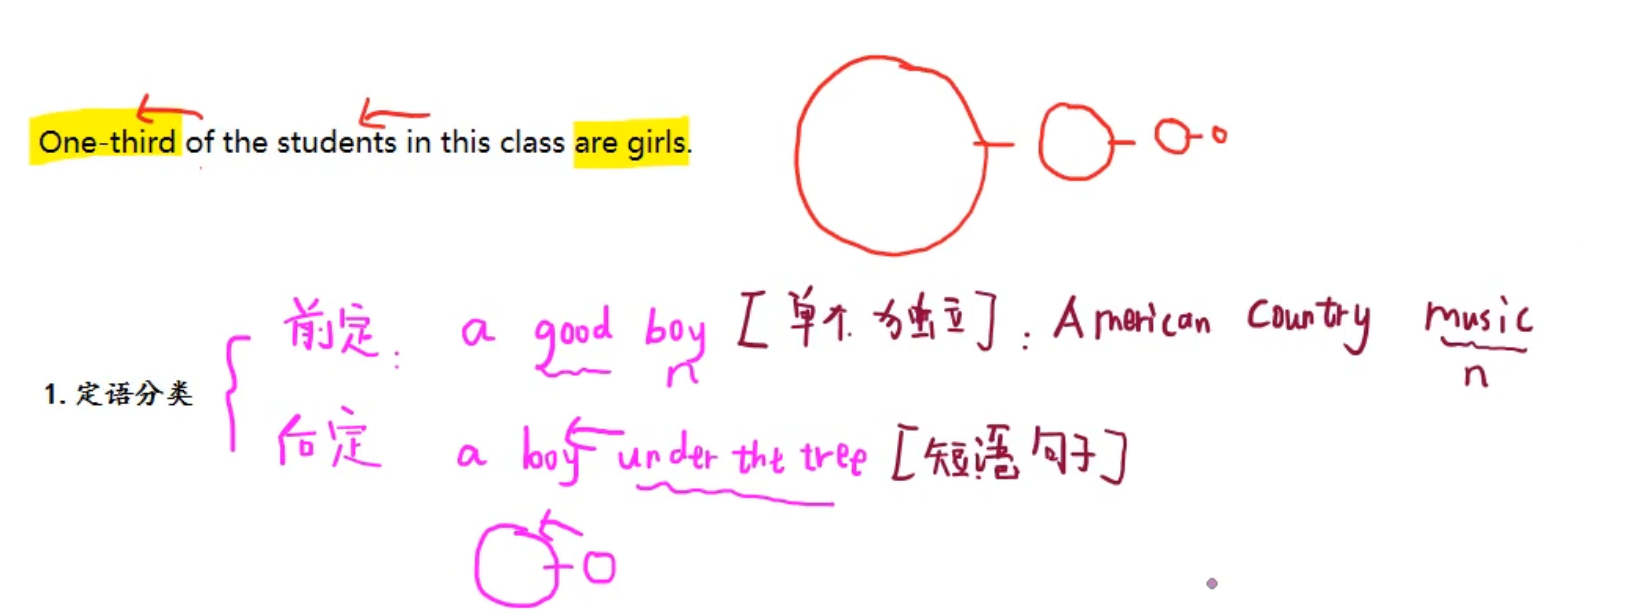 One-third of the students in this class are girls.
前定: a good boy [单个 为独立]: American Country music
n n
1. 定语分类
后定 a boy under the tree [短语 句子]